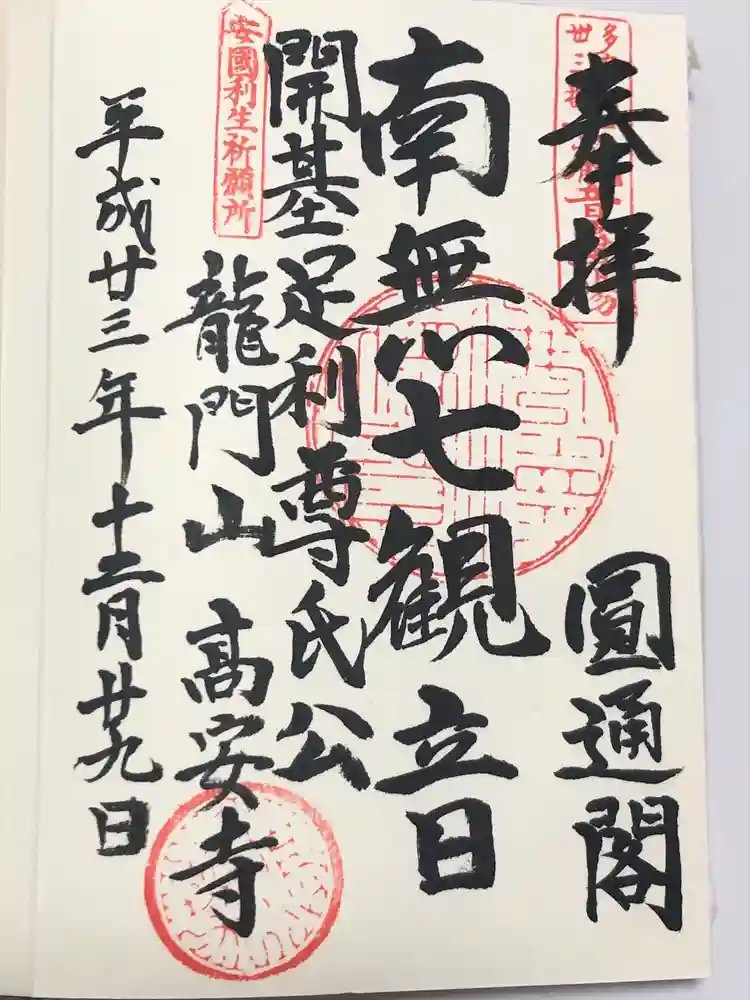 奉拝 圓通閣
南無七観立日
開基足利尊氏公
安國利生祈願所
龍門山 高安寺
平成廿三年十二月廿九日